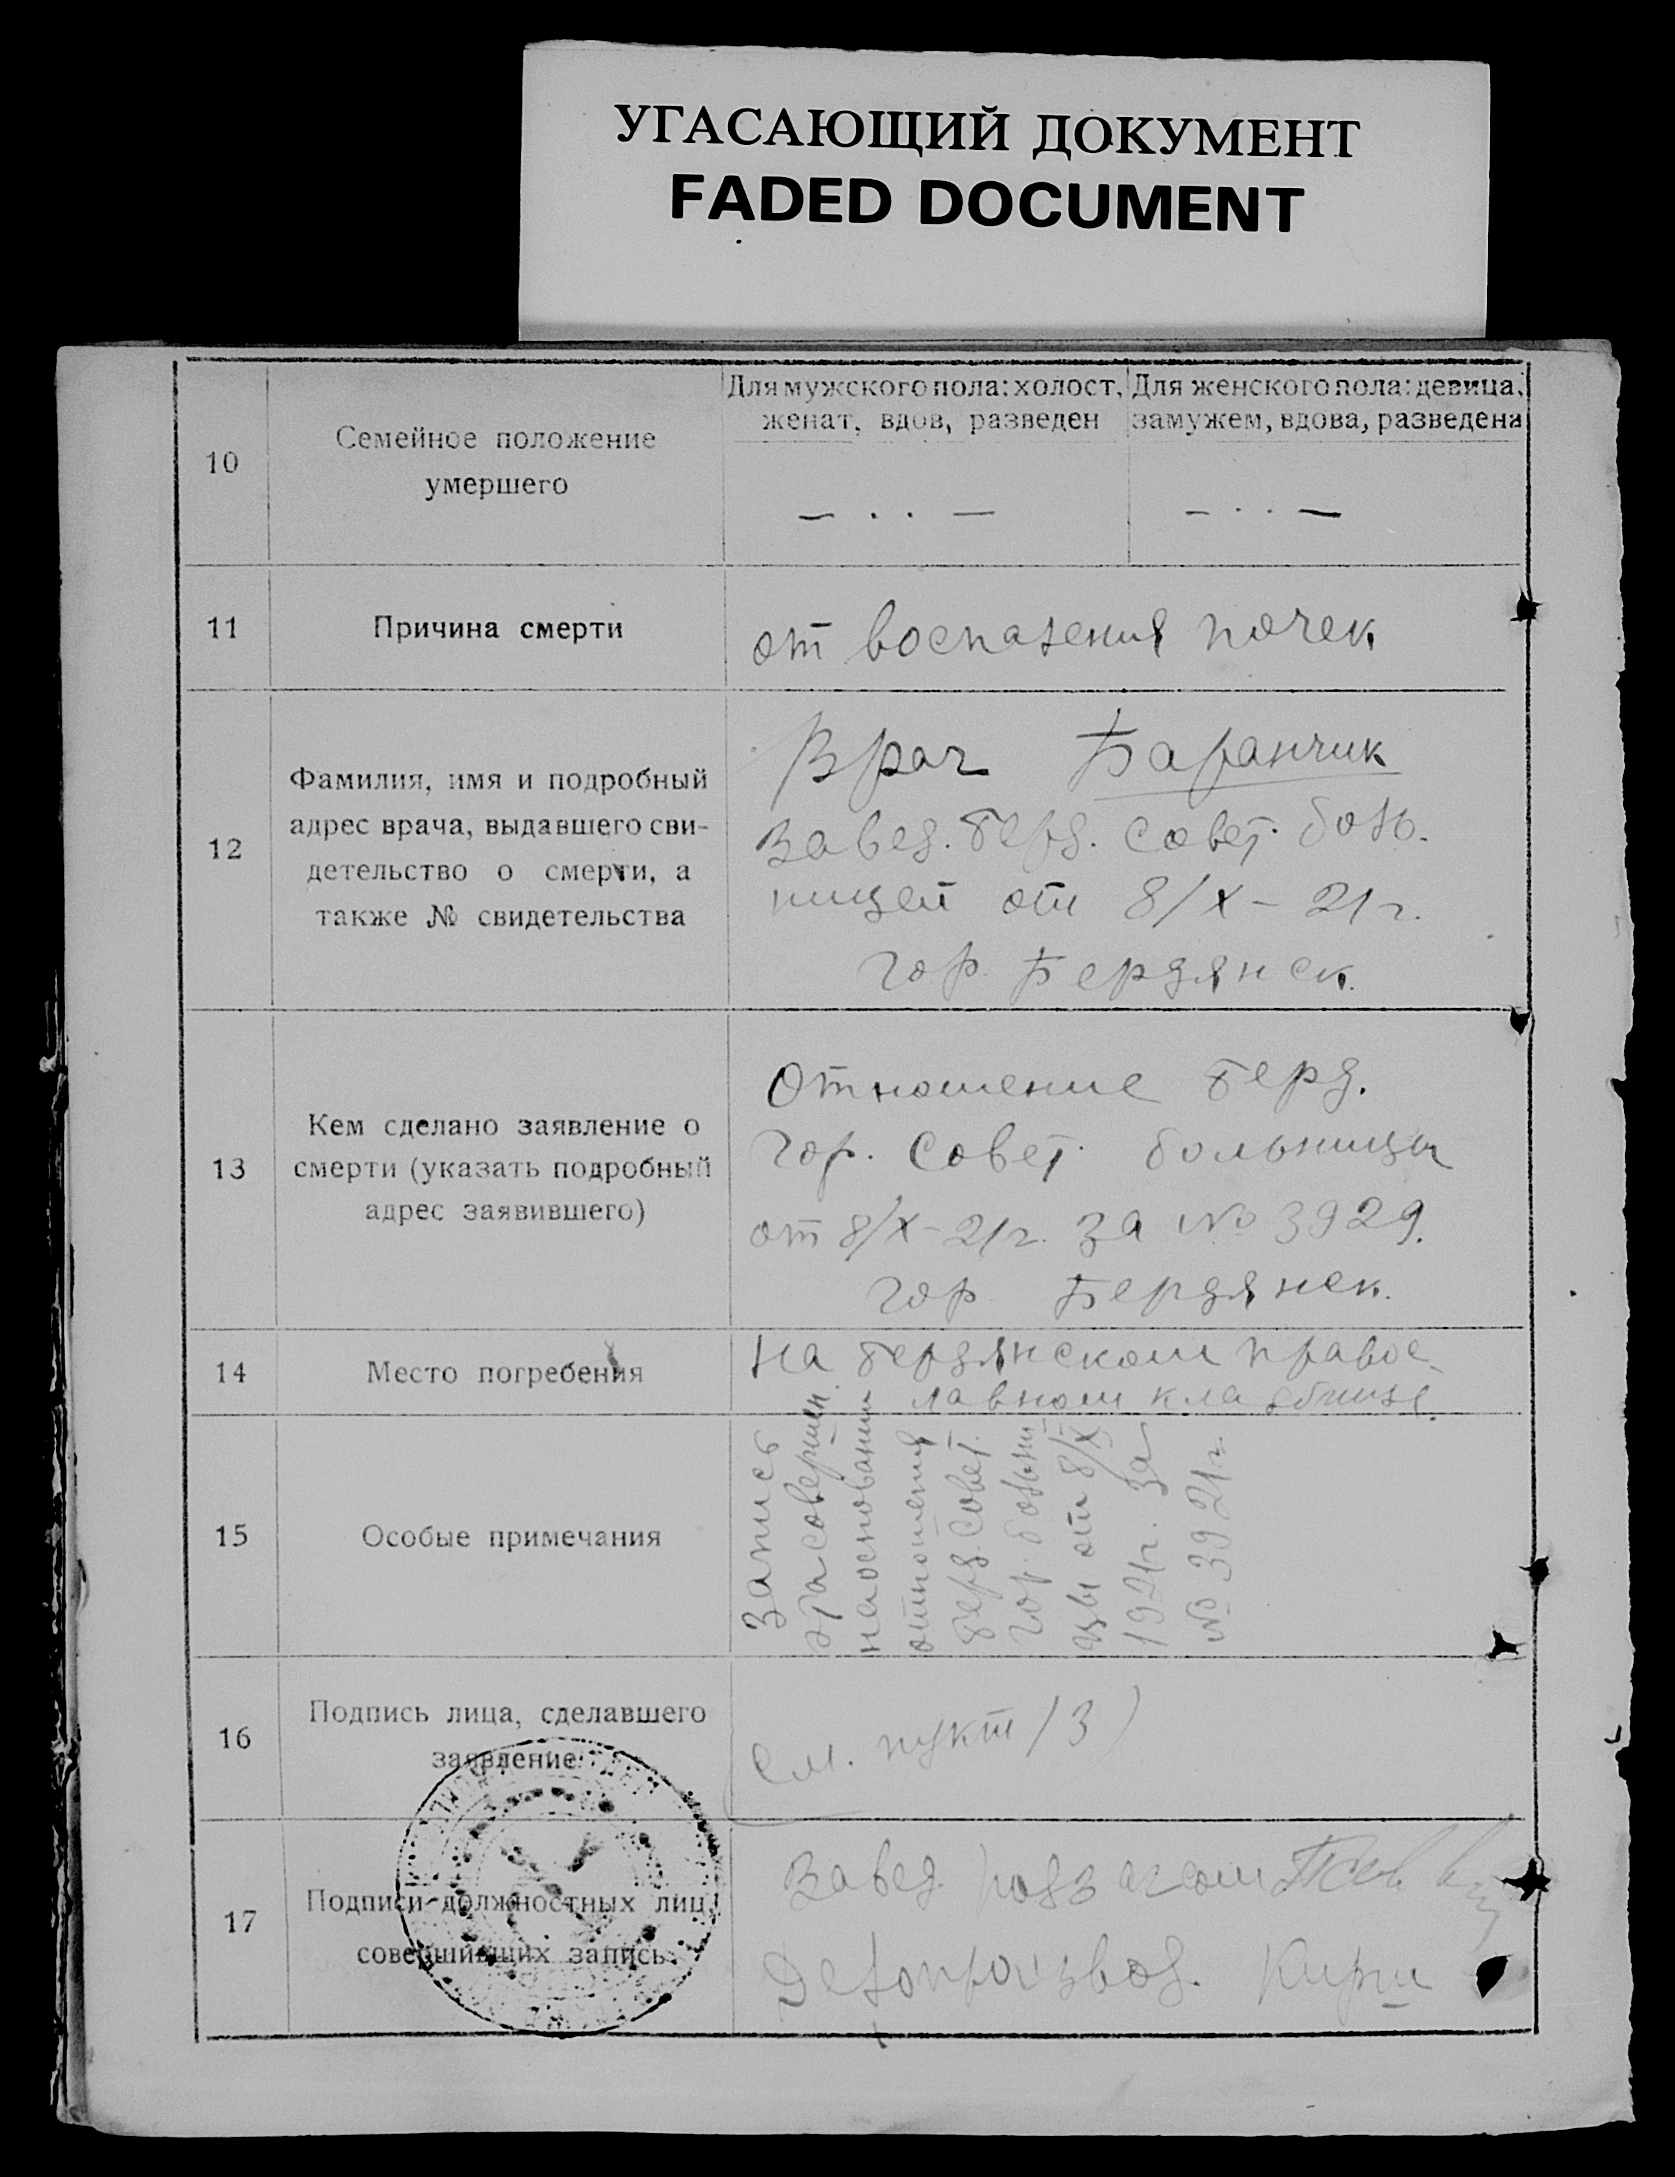 УГАСАЮЩИЙ ДОКУМЕНТ
FADED DOCUMENT
10
Семейное положение
умершего
Для мужского пола: холост,
женат, вдов, разведен
Для женского пола: девица,
замужем, вдова, разведена
— . . —
— . . —
11
Причина смерти
от воспаления почек
12
Фамилия, имя и подробный
адрес врача, выдавшего сви-
детельство о смерти, а
также № свидетельства
Врач Баранчик
Завед. берд. Совет. боль-
ницей от 8/X - 21 г.
гор. Бердянск.
13
Кем сделано заявление о
смерти (указать подробный
адрес заявившего)
Отношение берд.
гор. Совет. больницы
от 8/X - 21 г. за № 3929.
гор. Бердянск.
14
Место погребения
на бердянском правос-
лавном кладбище.
15
Особые примечания
Запись
эта совершен.
на основании
отношения
берд. Совет.
гор. больни
цы от 8/X
1921 г. за
№ 3921 г.
16
Подпись лица, сделавшего
заявление
(См. пункт 13)
17
Подписи должностных лиц,
совершивших запись.
Завед. подзагсом
Делопроизвод. Кирш